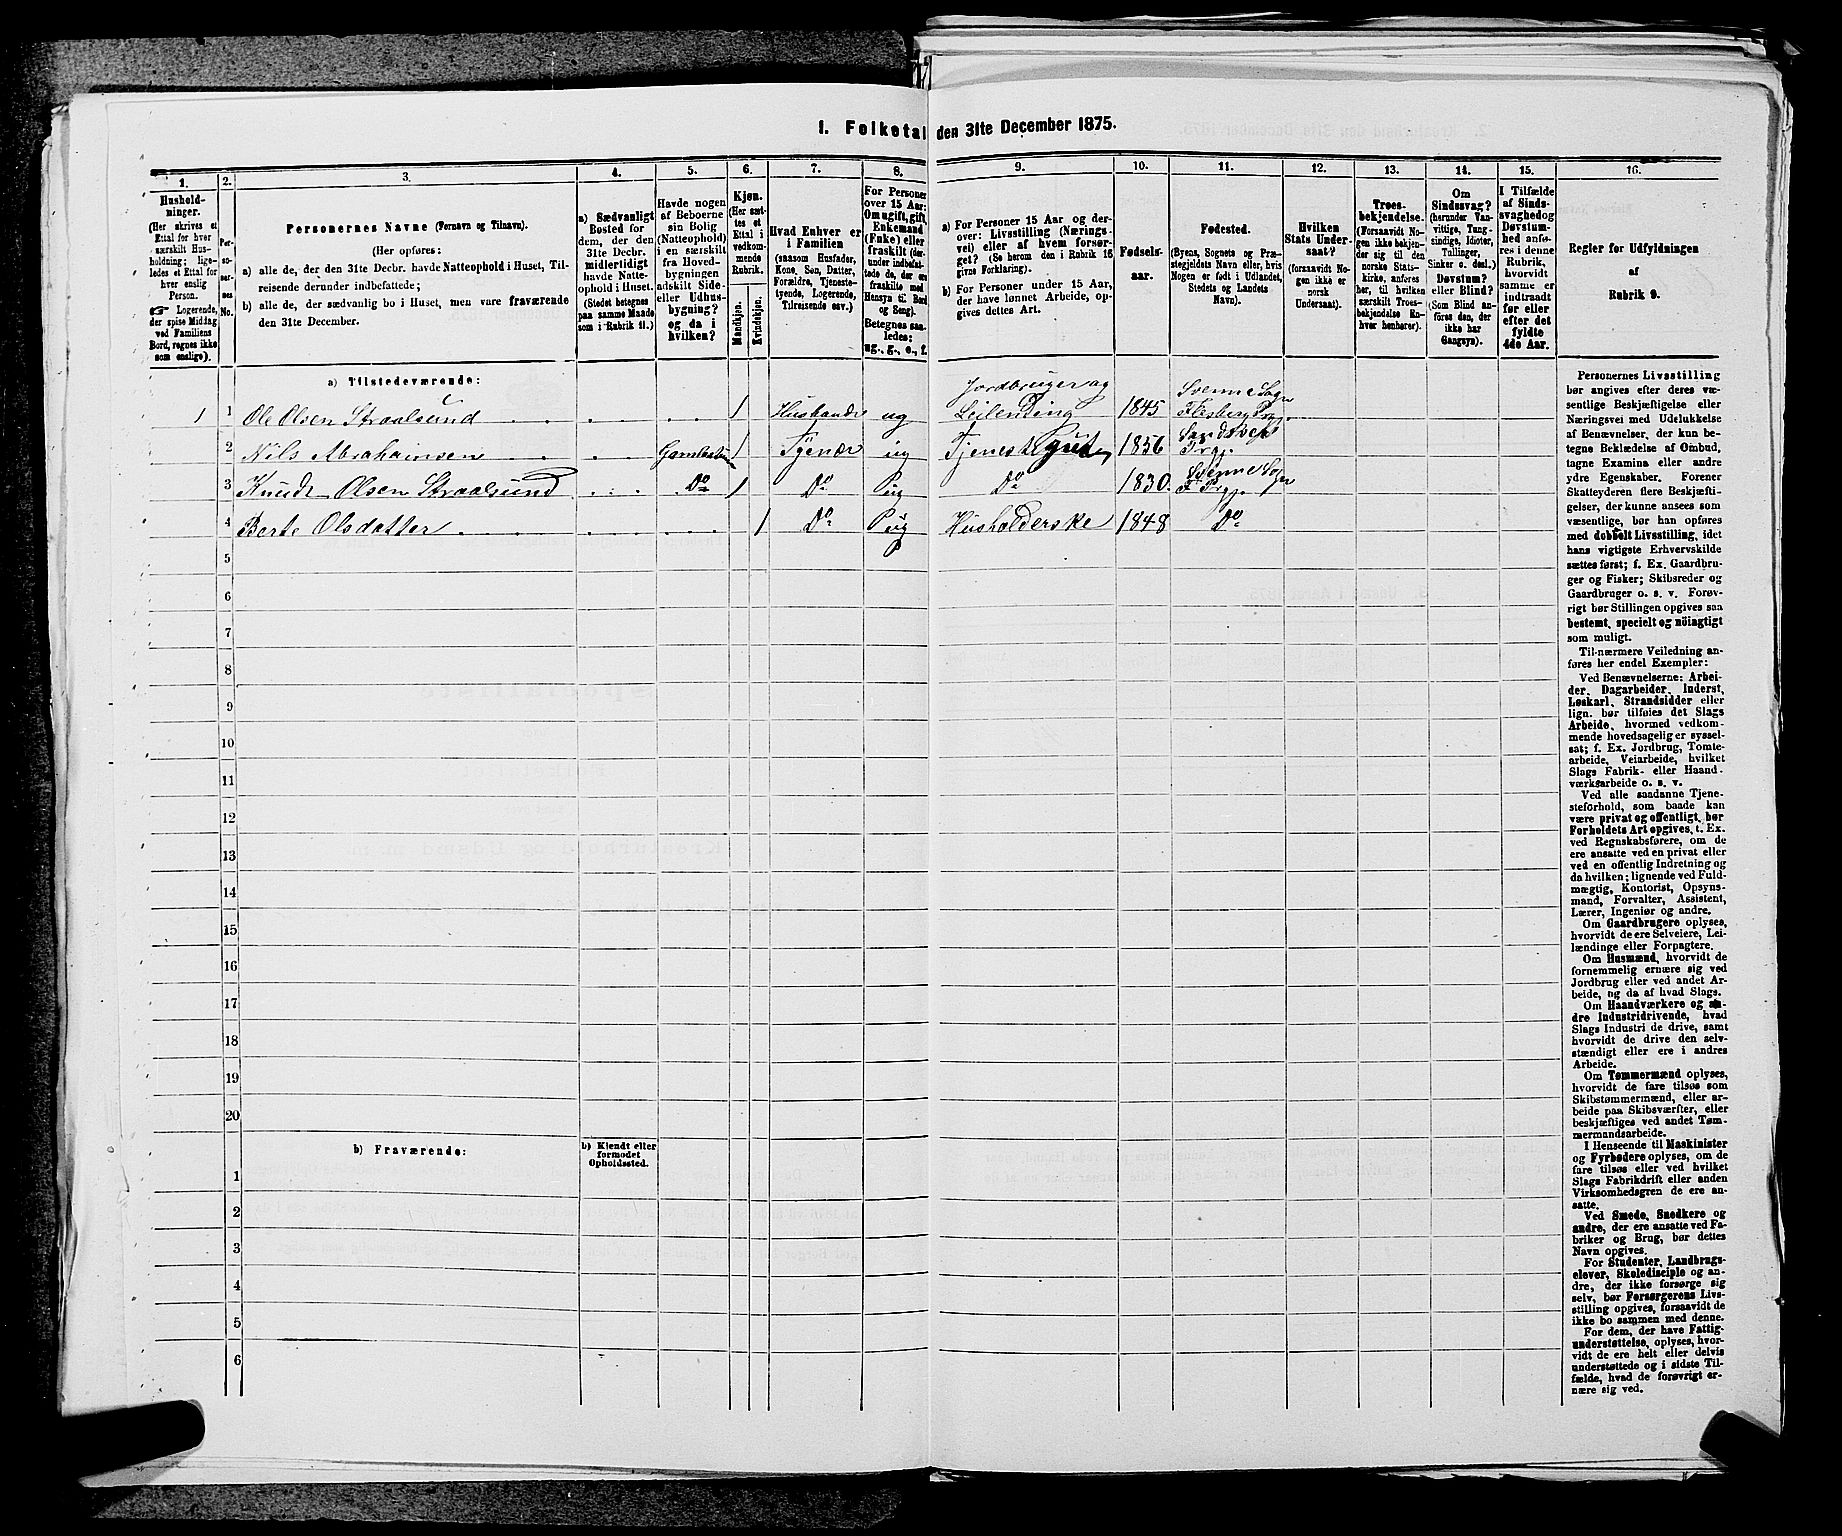 1. Folketal den 31te December 1875.
1.
Hushold-
ninger.
(Her skrives et
Ettal for hver
særskilt Hus-
holdning; lige-
ledes et Ettal for
hver enslig
Person.
☞ Logerende,
der spise Middag
ved Familiens
Bord, regnes ikke
som enslige).
2.
Per-
so-
ner-
nes
No.
3.
Personernes Navne (Fornavn og Tilnavn).
(Her opføres:
a) alle de, der den 31te Decbr. havde Natteophold i Huset, Til-
reisende derunder indbefattede;
b) alle de, der sædvanlig bo i Huset, men vare fraværende
den 31te December.
4.
a) Sædvanligt
Bosted for
dem, der den
31te Decbr.
midlertidigt
havde Natte-
ophold i Huset.
(Stedet betegnes
paa samme Maade
som i Rubrik 11.)
5.
Havde nogen
af Beboerne
sin Bolig
(Natteophold)
i en særskilt
fra Hoved-
bygningen
adskilt Side-
eller Udhus-
bygning?
og da i
hvilken?
6.
Kjøn.
(Her sæt-
tes et
Ettal i
vedkom-
mende
Rubrik.
Mandkjøn.
Kvindekjøn.
7.
Hvad Enhver er
i Familien
(saasom Husfader,
Kone, Søn, Datter,
Forældre, Tjeneste-
tyende, Logerende,
Tilreisende osv.)
8.
For Personer
over 15 Aar:
Om ugift, gift,
Enkemand
(Enke) eller
fraskilt (der-
under indbefat-
tede de, der ere
fraskilte med
Hensyn til Bord
og Seng).
Betegnes saa-
ledes:
ug., g., e., f.
9.
a) For Personer 15 Aar og der-
over: Livsstilling (Nærings-
vei) eller af hvem forsør-
get? (Se herom den i Rubrik 16
givne Forklaring).
b) For Personer under 15 Aar,
der have lønnet Arbeide, op-
gives dettes Art.
10.
Fødsels-
aar.
11.
Fødested.
(Byens, Sognets og Præ-
stegjeldets Navn eller, hvis
Nogen er født i Udlandet,
Stedets og Landets
Navn).
12.
Hvilken
Stats Under-
saat?
(forsaavidt No-
gen ikke er
norsk
Undersaat).
13.
Troes-
bekjendelse.
(Forsaavidt No-
gen ikke bekjen-
der sig til den
norske Stats-
kirke, anføres
her, til hvilken
særskilt Troes-
bekjendelse En-
hver henhører).
14.
Om
Sindssvag?
(herunder Van-
vittige, Tung-
sindige, Idioter,
Tullinger,
Sinker o. desl.)
Døvstum?
eller Blind?
(Som Blind an-
føres den, der
ikke har
Gangsyn).
15.
I Tilfælde
af Sinds-
svaghed og
Døvstum-
hed anfø-
res i denne
Rubrik,
hvorvidt
samme er
indtraadt
før eller
efter det
fyldte
4de Aar.
16.
Regler for Udfyldningen
af
Rubrik 9.
a) Tilstedeværende:
1 1 Ole Olsen Straalsund 1 Husbande ug Jordbruger og Leilending 1845 Svenne Sogn Flesberg Prgj.
2 Nils Abrahamsen 1 Tjener ug Tjenestegut 1856 Sandsvers Prgj.
3 Knudt Olsen Straalsund Do 1 Do ug Do 1830. Svenne Sogn F. Prgj.
4 Berte Olsdatter 1 Do ug Husholderske 1848 Do
5
6
7
8
9
10
11
12
13
14
15
16
17
18
19
20
b) Fraværende:
b) Kjendt eller
formodet
Opholdssted.
1
2
3
4
5
6
Personernes Livsstilling
bør angives efter deres væ-
sentlige Beskjæftigelse eller
Næringsvei med Udelukkelse
af Benævnelser, der kun be-
tegne Beklædelse af Ombud,
tagne Examina eller andre
ydre Egenskaber. Forener
Skatteyderen flere Beskjæfti-
gelser, der kunne ansees som
væsentlige, bør han opføres
med dobbelt Livsstilling, idet
hans vigtigste Erhvervskilde
sættes først; f. Ex. Gaardbru-
ger og Fisker; Skibsreder og
Gaardbruger o. s. v. Forøv-
rigt bør Stillingen opgives saa
bestemt, specielt og nöiagtigt
som muligt.
Til nærmere Veiledning an-
føres her endel Exempler:
Ved Benævnelserne: Arbei-
der, Dagarbeider, Inderst,
Løskarl, Strandsidder eller
lign. bør tilføies det Slags
Arbeide, hvormed vedkom-
mende hovedsagelig er syssel-
sat; f. Ex. Jordbrug, Tomte-
arbeide, Veiarbeide, hvilket
Slags Fabrik- eller Haand-
værksarbeide o. s. v.
Ved alle saadanne Tjene-
steforhold, som baade kan
være privat og offentligt, bør
Forholdets Art opgives, t. Ex.
ved Regnskabsførere, om de
ere ansatte ved en privat eller
ved en offentlig Indretning og
da hvilken; lignende ved Fuld-
mægtig, Kontorist, Opsyns-
mand, Forvalter, Assistent,
Lærer, Ingeniør og andre.
Om Gaardbrugere oplyses,
hvorvidt de ere Selveiere, Lei-
lændinge eller Forpagtere.
Om Husmænd, hvorvidt de
fornemmelig ernære sig ved
Jordbrug eller ved andet Ar-
beide, og da af hvad Slags.
Om Haandværkere og an-
dre Industridrivende, hvad
Slags Industri de drive, samt
hvorvidt de drive den selv-
stændigt eller ere i andres
Arbeide.
Om Tømmermænd oplyses,
hvorvidt de fare tilsøs som
Skibstømmermænd, eller ar-
beide paa Skibsværfter, eller
beskjæftiges ved andet Tøm-
mermandsarbeide.
I Henseende til Maskinister
og Fyrbødere oplyses, om de
fare tilsøs eller ved hvilket
Slags Fabrikdrift eller anden
Virksomhedsgren de ere an-
satte.
Ved Smede, Snedkere og
andre, der ere ansatte ved Fa-
briker og Brug, bør dettes
Navn opgives.
For Studenter, Landbrugs-
elever, Skoledisciple og an-
dre, der ikke forsørge sig
selv, bør Forsørgerens Livs-
stilling opgives, forsaavidt de
ikke bo sammen med denne.
For dem, der have Fattig-
understøttelse, oplyses, hvor-
vidt de ere helt eller delvis
understøttede og i sidste Til-
fælde, hvad de forøvrigt er-
nære sig ved.